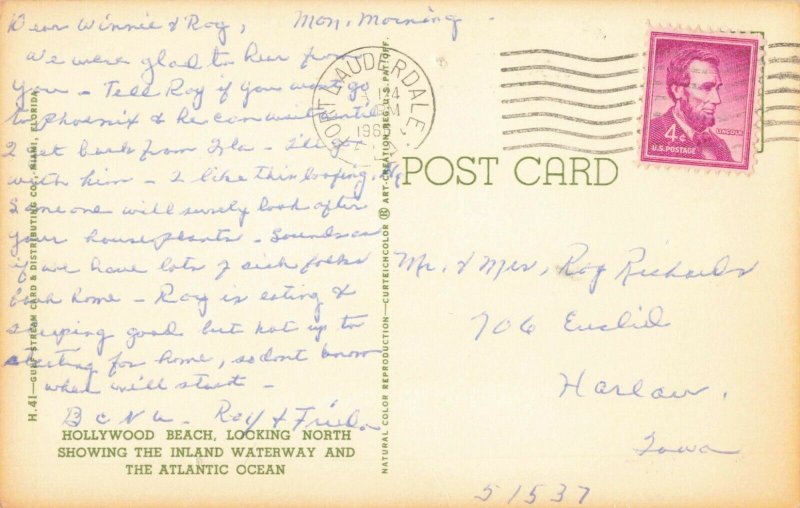 Dear Winnie & Roy, Mon. Morning.
We were glad to hear from
you - Tell Roy if you can go
to Phoenix & he can wait until
I get back from Fla - I'll go
with him - I like this loafing.
Someone will surely look after
your houseplants - Sounds as
if we have lots of sick folks
back home - Ray is eating &
sleeping good but not up to
starting for home, so dont know
when will start -
B C N U - Ray &
HOLLYWOOD BEACH, LOOKING NORTH
SHOWING THE INLAND WATERWAY AND
THE ATLANTIC OCEAN
H.41—GULF STREAM CARD & DISTRIBUTING CO., MIAMI, FLORIDA.
NATURAL COLOR REPRODUCTION—CURTEICHCOLOR ® ART-CREATION REG. U.S. PAT. OFF.
FORT LAUDERDALE,
POST CARD
4¢
LINCOLN
U.S. POSTAGE
Mr. & Mrs. Roy Richards
706 Euclid
Harlan.
Iowa
51537